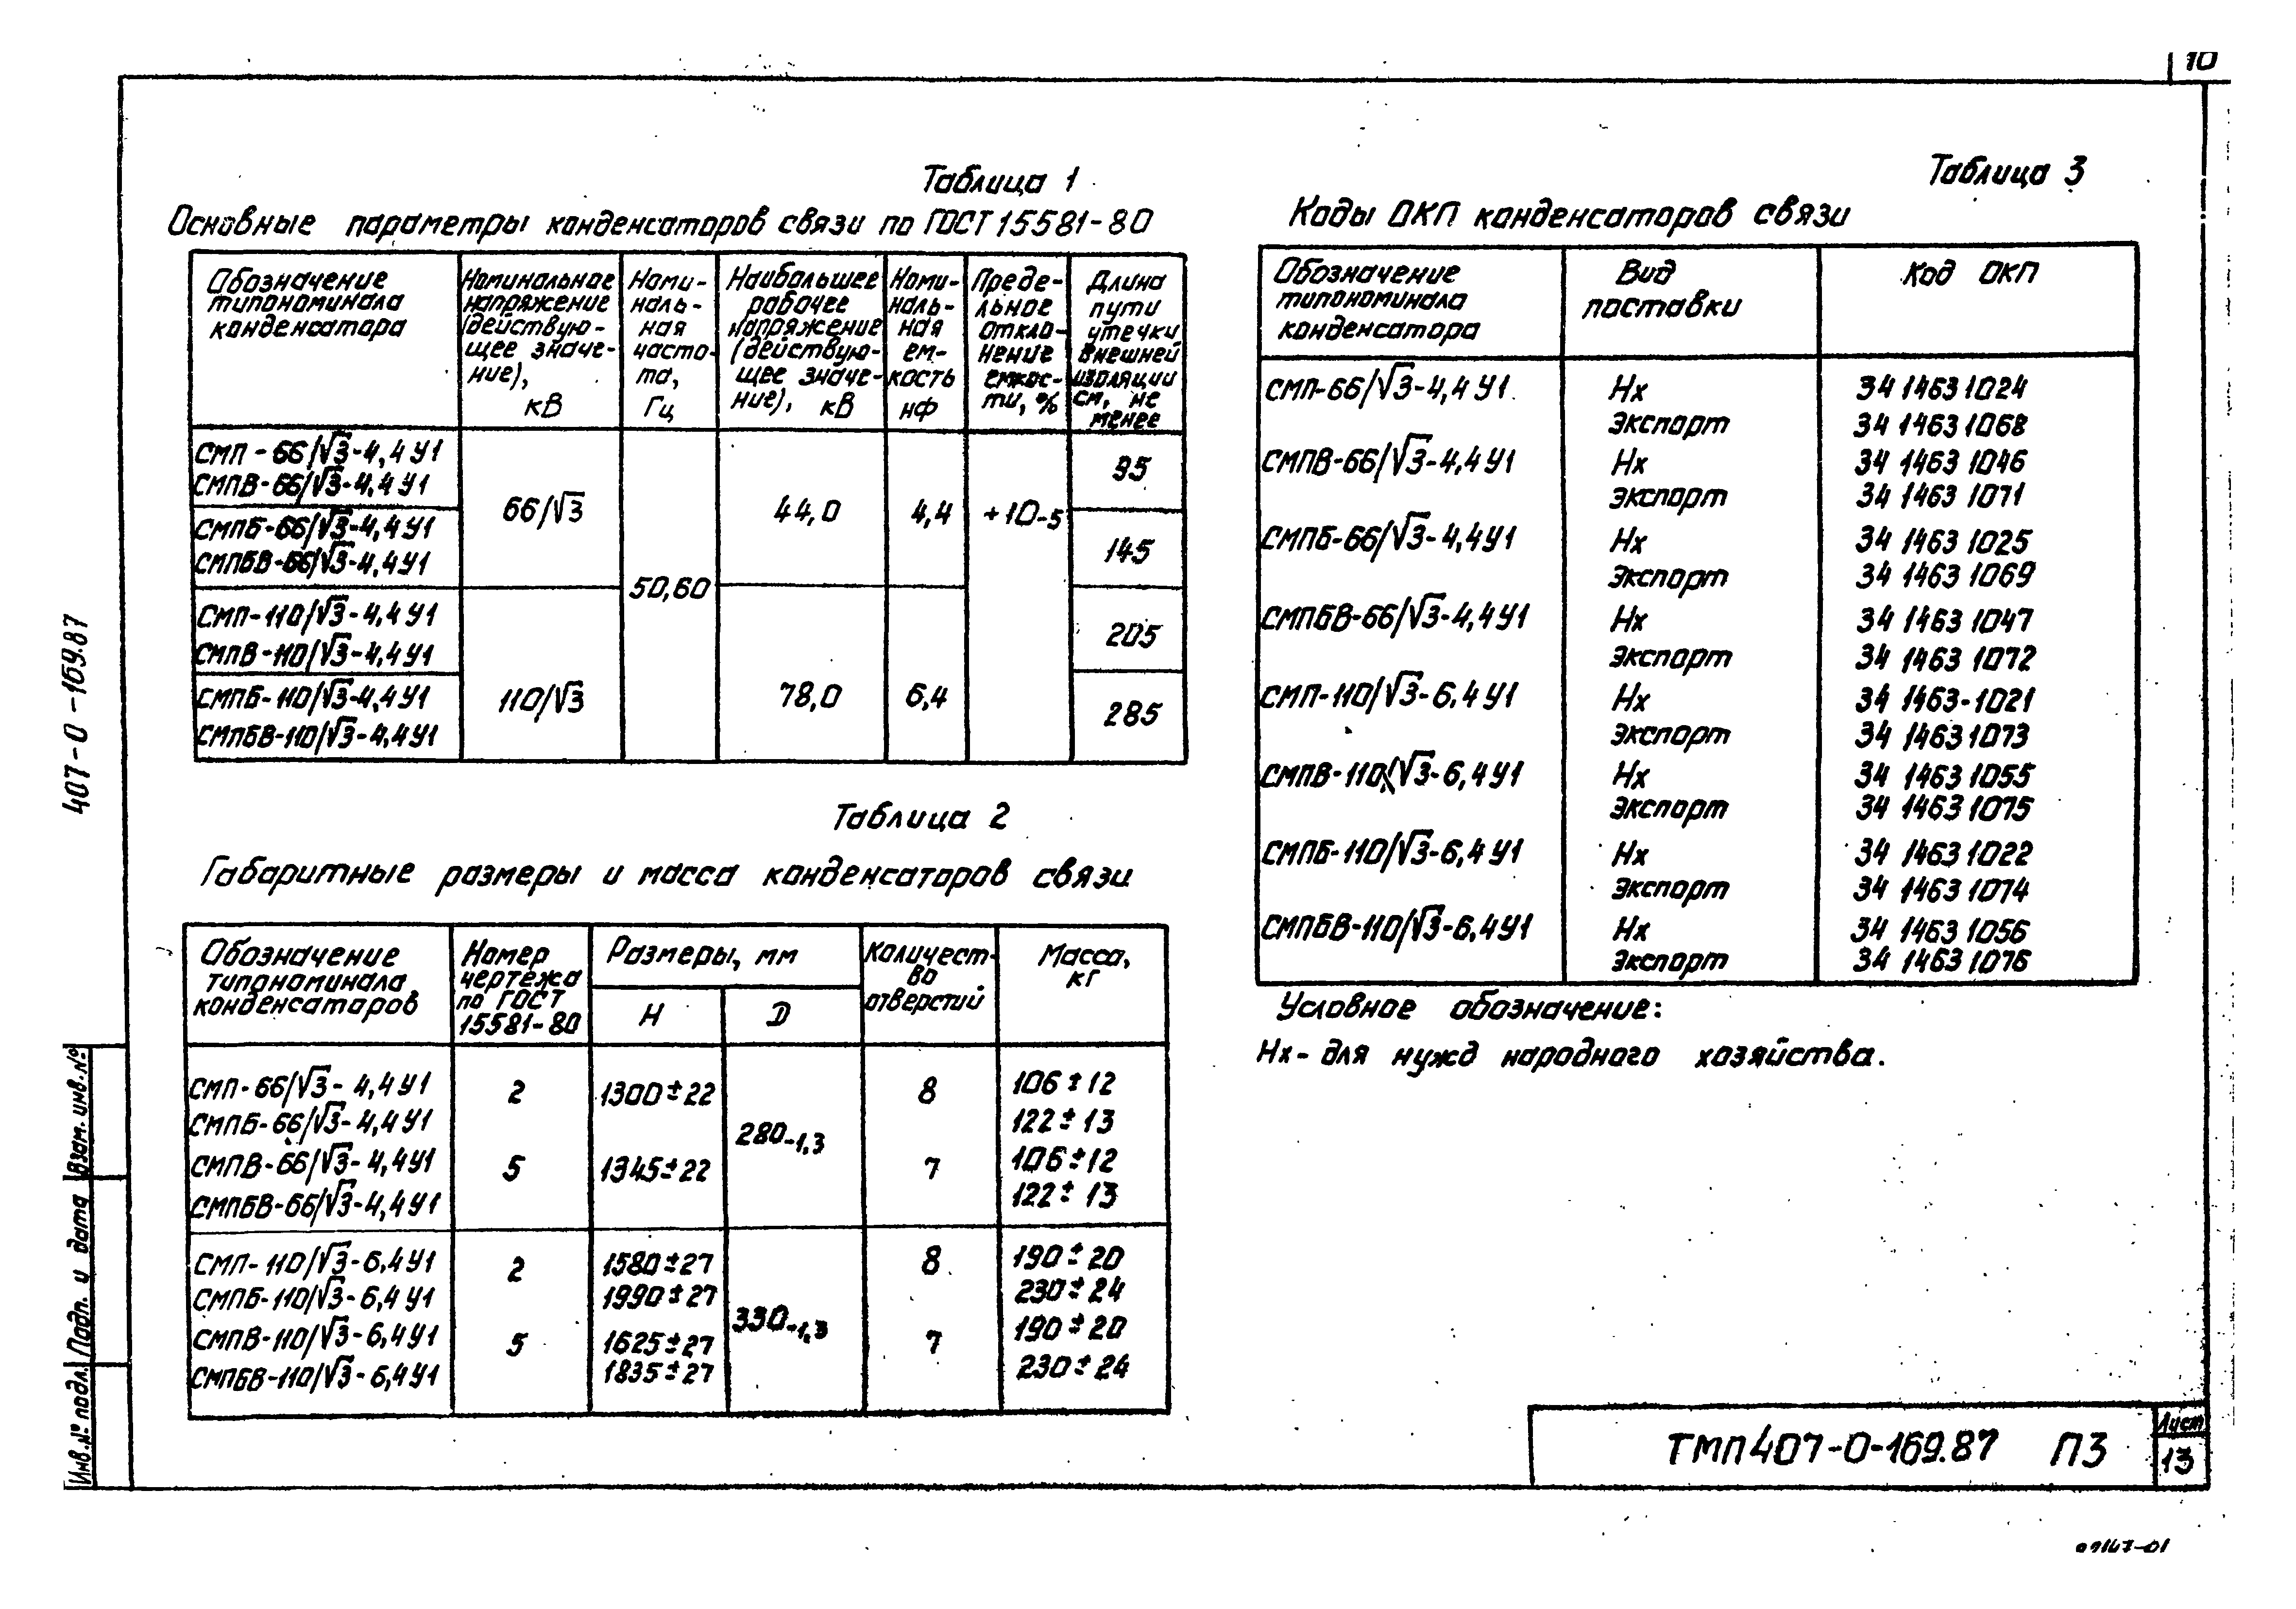 10
Таблица 1
Основные параметры конденсаторов связи по ГОСТ 15581-80
Обозначение типономинала конденсатора
Номинальное напряжение (действую-щее значе-ние), кВ
Номи-наль-ная часто-та, Гц
Наибольшее рабочее напряжение (действую-щее значе-ние), кВ
Номи-наль-ная ем-кость нф
Преде-льное откло-нение емкос-ти, %
Длина пути утечки внешней изоляции см, не менее
СМП-66/√3-4,4 У1
СМПВ-66/√3-4,4 У1
95
66/√3 50,60 44,0 4,4 +10-5
СМПБ-66/√3-4,4 У1
СМПБВ-66/√3-4,4 У1
145
СМП-110/√3-4,4 У1
СМПВ-110/√3-4,4 У1
205
110/√3 78,0 6,4
СМПБ-110/√3-4,4 У1
СМПБВ-110/√3-4,4 У1
285
Таблица 2
Габаритные размеры и масса конденсаторов связи
Обозначение типономинала конденсаторов
Номер чертежа по ГОСТ 15581-80
Размеры, мм
H D
Количест-во отверстий
Масса, кг
СМП-66/√3-4,4 У1 2 1300±22 8 106±12
СМПБ-66/√3-4,4 У1 122±13
280-1,3
СМПВ-66/√3-4,4 У1 5 1345±22 7 106±12
СМПБВ-66/√3-4,4 У1 122±13
СМП-110/√3-6,4 У1 2 1580±27 8 190±20
СМПБ-110/√3-6,4 У1 1990±27 230±24
330-1,3
СМПВ-110/√3-6,4 У1 5 1625±27 7 190±20
СМПБВ-110/√3-6,4 У1 1835±27 230±24
Таблица 3
Коды ОКП конденсаторов связи
Обозначение типономинала конденсатора
Вид поставки
Код ОКП
СМП-66/√3-4,4 У1 Нх 34 1463 1024
Экспорт 34 1463 1068
СМПВ-66/√3-4,4 У1 Нх 34 1463 1046
Экспорт 34 1463 1071
СМПБ-66/√3-4,4 У1 Нх 34 1463 1025
Экспорт 34 1463 1069
СМПБВ-66/√3-4,4 У1 Нх 34 1463 1047
Экспорт 34 1463 1072
СМП-110/√3-6,4 У1 Нх 34 1463-1021
Экспорт 34 1463 1073
СМПВ-110/√3-6,4 У1 Нх 34 1463 1055
Экспорт 34 1463 1075
СМПБ-110/√3-6,4 У1 Нх 34 1463 1022
Экспорт 34 1463 1074
СМПБВ-110/√3-6,4 У1 Нх 34 1463 1056
Экспорт 34 1463 1076
Условное обозначение:
Нх - для нужд народного хозяйства.
407-0-169.87
Взам. инв. №
Подп. и дата
Инв. № подл.
ТМП407-0-169.87 ПЗ
Лист
13